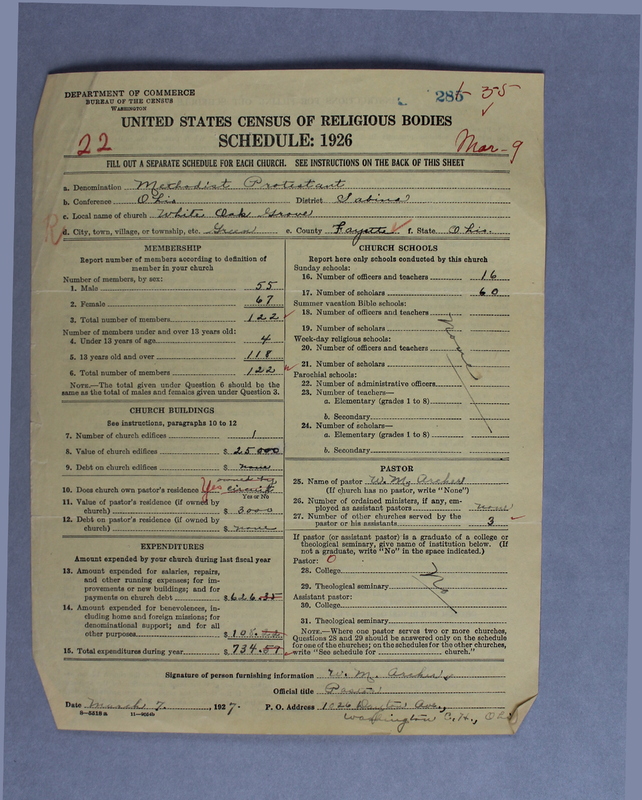 DEPARTMENT OF COMMERCE
BUREAU OF THE CENSUS
WASHINGTON
285 35
UNITED STATES CENSUS OF RELIGIOUS BODIES
22 SCHEDULE: 1926 Mar-9
FILL OUT A SEPARATE SCHEDULE FOR EACH CHURCH. SEE INSTRUCTIONS ON THE BACK OF THIS SHEET
a. Denomination Methodist Protestant
b. Conference Ohio District Sabina
c. Local name of church White Oak Grove
d. City, town, village, or township, etc. Green e. County Fayette f. State Ohio
MEMBERSHIP
Report number of members according to definition of
member in your church
Number of members, by sex:
1. Male 55
2. Female 67
3. Total number of members 122
Number of members under and over 13 years old:
4. Under 13 years of age 4
5. 13 years old and over 118
6. Total number of members 122
NOTE.—The total given under Question 6 should be the
same as the total of males and females given under Question 3.
CHURCH BUILDINGS
See instructions, paragraphs 10 to 12
7. Number of church edifices 1
8. Value of church edifices $ 25000
9. Debt on church edifices $ none
owned by
10. Does church own pastor's residence Yes circuit
Yes or No
11. Value of pastor's residence (if owned by
church) $ 3000
12. Debt on pastor's residence (if owned by
church) $ none
EXPENDITURES
Amount expended by your church during last fiscal year
13. Amount expended for salaries, repairs,
and other running expenses; for im-
provements or new buildings; and for
payments on church debt $ 626
14. Amount expended for benevolences, in-
cluding home and foreign missions; for
denominational support; and for all
other purposes $
15. Total expenditures during year $ 734
CHURCH SCHOOLS
Report here only schools conducted by this church
Sunday schools:
16. Number of officers and teachers 16
17. Number of scholars 60
Summer vacation Bible schools:
18. Number of officers and teachers
19. Number of scholars
None
Week-day religious schools:
20. Number of officers and teachers
21. Number of scholars
Parochial schools:
22. Number of administrative officers
23. Number of teachers—
a. Elementary (grades 1 to 8)
b. Secondary
24. Number of scholars—
a. Elementary (grades 1 to 8)
b. Secondary
PASTOR
25. Name of pastor W. M. Archer
(If church has no pastor, write "None")
26. Number of ordained ministers, if any, em-
ployed as assistant pastors none
27. Number of other churches served by the
pastor or his assistants 3
If pastor (or assistant pastor) is a graduate of a college or
theological seminary, give name of institution below. (If
not a graduate, write "No" in the space indicated.)
Pastor: 0
28. College
No
29. Theological seminary
Assistant pastor:
30. College
31. Theological seminary
NOTE.—Where one pastor serves two or more churches,
Questions 28 and 29 should be answered only on the schedule
for one of the churches; on the schedules for the other churches,
write "See schedule for church."
Signature of person furnishing information W. M. Archer
Official title Pastor
Date March 7, 1927. P. O. Address 1026 Dayton Ave.,
Washington C. H., Ohio